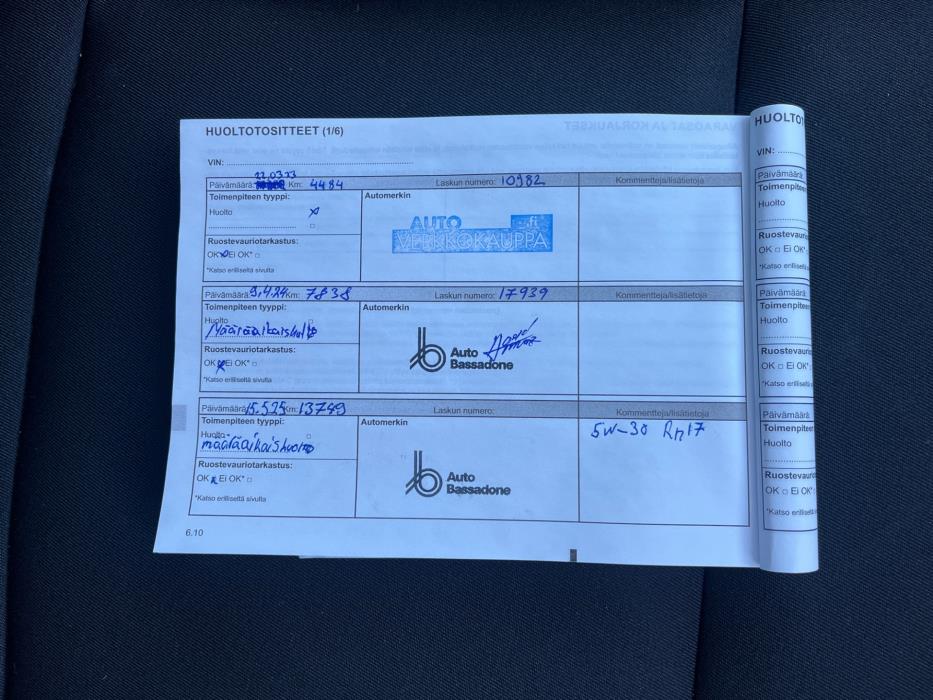 HUOLTOTOSITTEET (1/6)
VIN:
22.03.23
Päivämäärä: Km: 4484 Laskun numero: 10982 Kommentteja/lisätietoja
Toimenpiteen tyyppi: Automerkin
Huolto x
AUTO .fi
VERKKOKAUPPA
Ruostevauriotarkastus:
OK x Ei OK* □
*Katso erilliseltä sivulta
Päivämäärä: 9.4.24 Km: 7838 Laskun numero: 17939 Kommentteja/lisätietoja
Toimenpiteen tyyppi: Automerkin
Huolto
Määräaikaishuolto
Auto
Bassadone
Ruostevauriotarkastus:
OK x Ei OK* □
*Katso erilliseltä sivulta
Päivämäärä: 15.5.25 Km: 13749 Laskun numero: Kommentteja/lisätietoja
Toimenpiteen tyyppi: Automerkin 5W-30 Rn17
Huolto □
määräaikaishuolto
Auto
Bassadone
Ruostevauriotarkastus:
OK x Ei OK* □
*Katso erilliseltä sivulta
6.10
HUOLTOT
VIN:
Päivämäärä:
Toimenpiteen
Huolto
Ruostevaurio
OK □ Ei OK*
*Katso erilliseltä
Päivämäärä:
Toimenpiteen
Huolto
Ruostevaurio
OK □ Ei OK*
*Katso erilliseltä
Päivämäärä:
Toimenpiteen
Huolto
Ruostevaurio
OK □ Ei OK*
*Katso erilliseltä